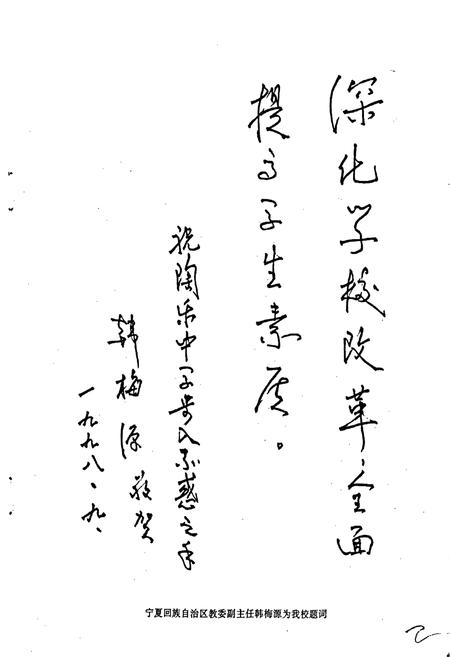 深化学校改革、全面
提高学生素质。
祝陶乐中学步入不惑之年
韩梅源敬贺
一九九八·九·
宁夏回族自治区教委副主任韩梅源为我校题词